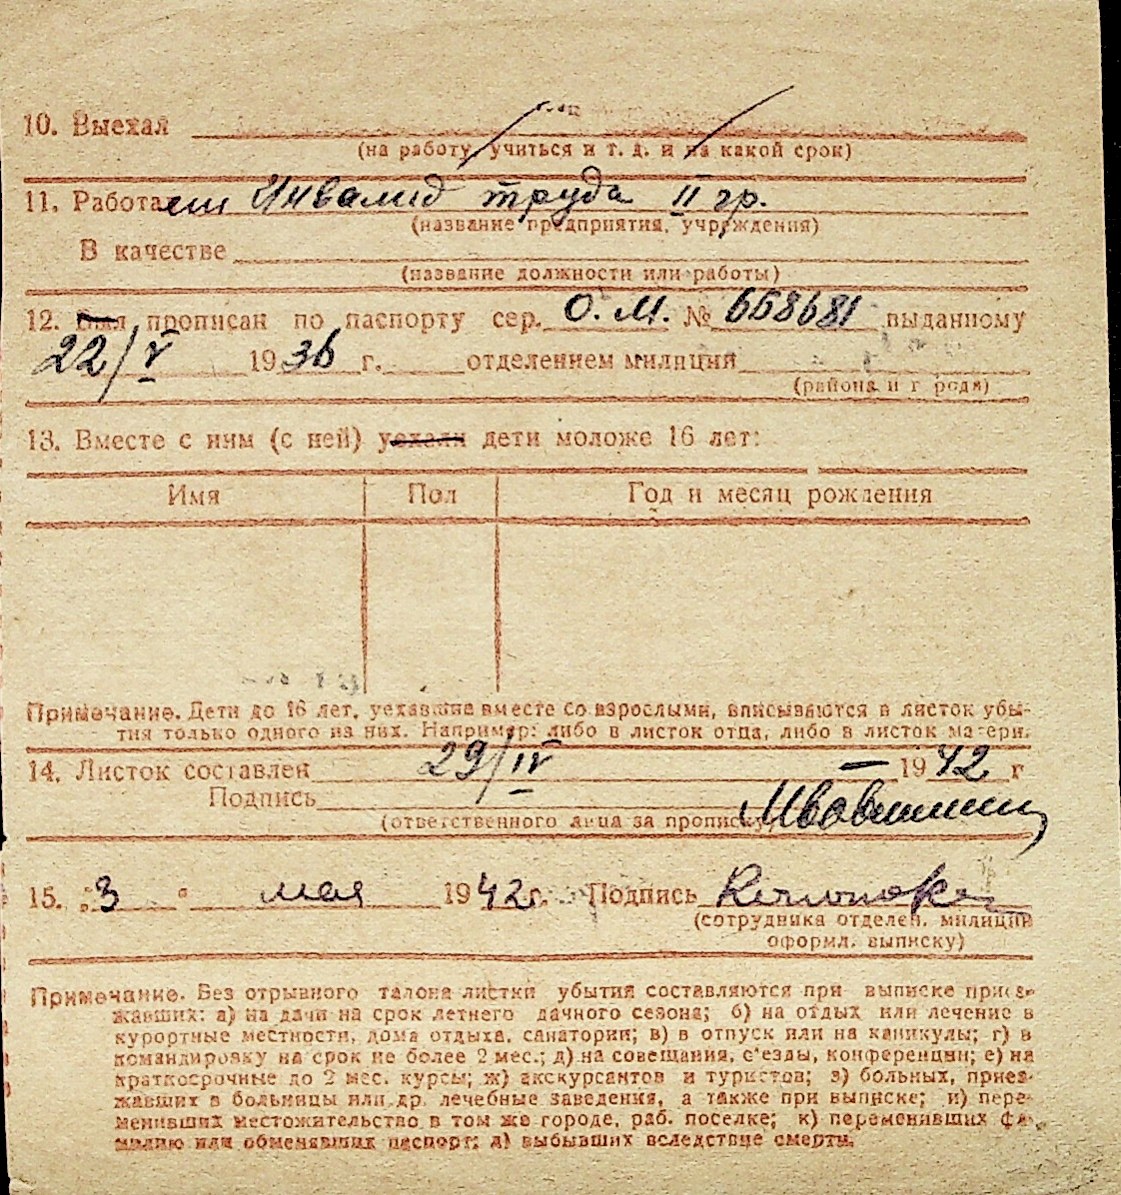 10. Выехал
(на работу, учиться и т. д. и на какой срок)
11. Работал Инвалид труда II гр.
(название предприятия, учреждения)
В качестве
(название должности или работы)
12. Был прописан по паспорту сер. О. М. № 668681 выданному
22/V 1936 г. отделением милиции
(района и города)
13. Вместе с ним (с ней) уехали дети моложе 16 лет:
Имя Пол Год и месяц рождения
Примечание. Дети до 16 лет, уехавшие вместе со взрослыми, вписываются в листок убы-
тия только одного из них. Например: либо в листок отца, либо в листок матери.
14. Листок составлен 29/IV — 1942 г
Подпись
(ответственного лица за прописку)
15. "3" мая 1942 г. Подпись
(сотрудника отделен. милиции
оформл. выписку)
Примечание. Без отрывного талона листки убытия составляются при выписке приез-
жавших: а) на дачи на срок летнего дачного сезона; б) на отдых или лечение в
курортные местности, дома отдыха, санатории; в) в отпуск или на каникулы; г) в
командировку на срок не более 2 мес.; д) на совещания, с'езды, конференции; е) на
краткосрочные до 2 мес. курсы; ж) экскурсантов и туристов; з) больных, приез-
жавших в больницы или др. лечебные заведения, а также при выписке; и) пере-
менивших местожительство в том же городе, раб. поселке; к) переменивших фа-
милию или обменявших паспорт; л) выбывших вследствие смерти.